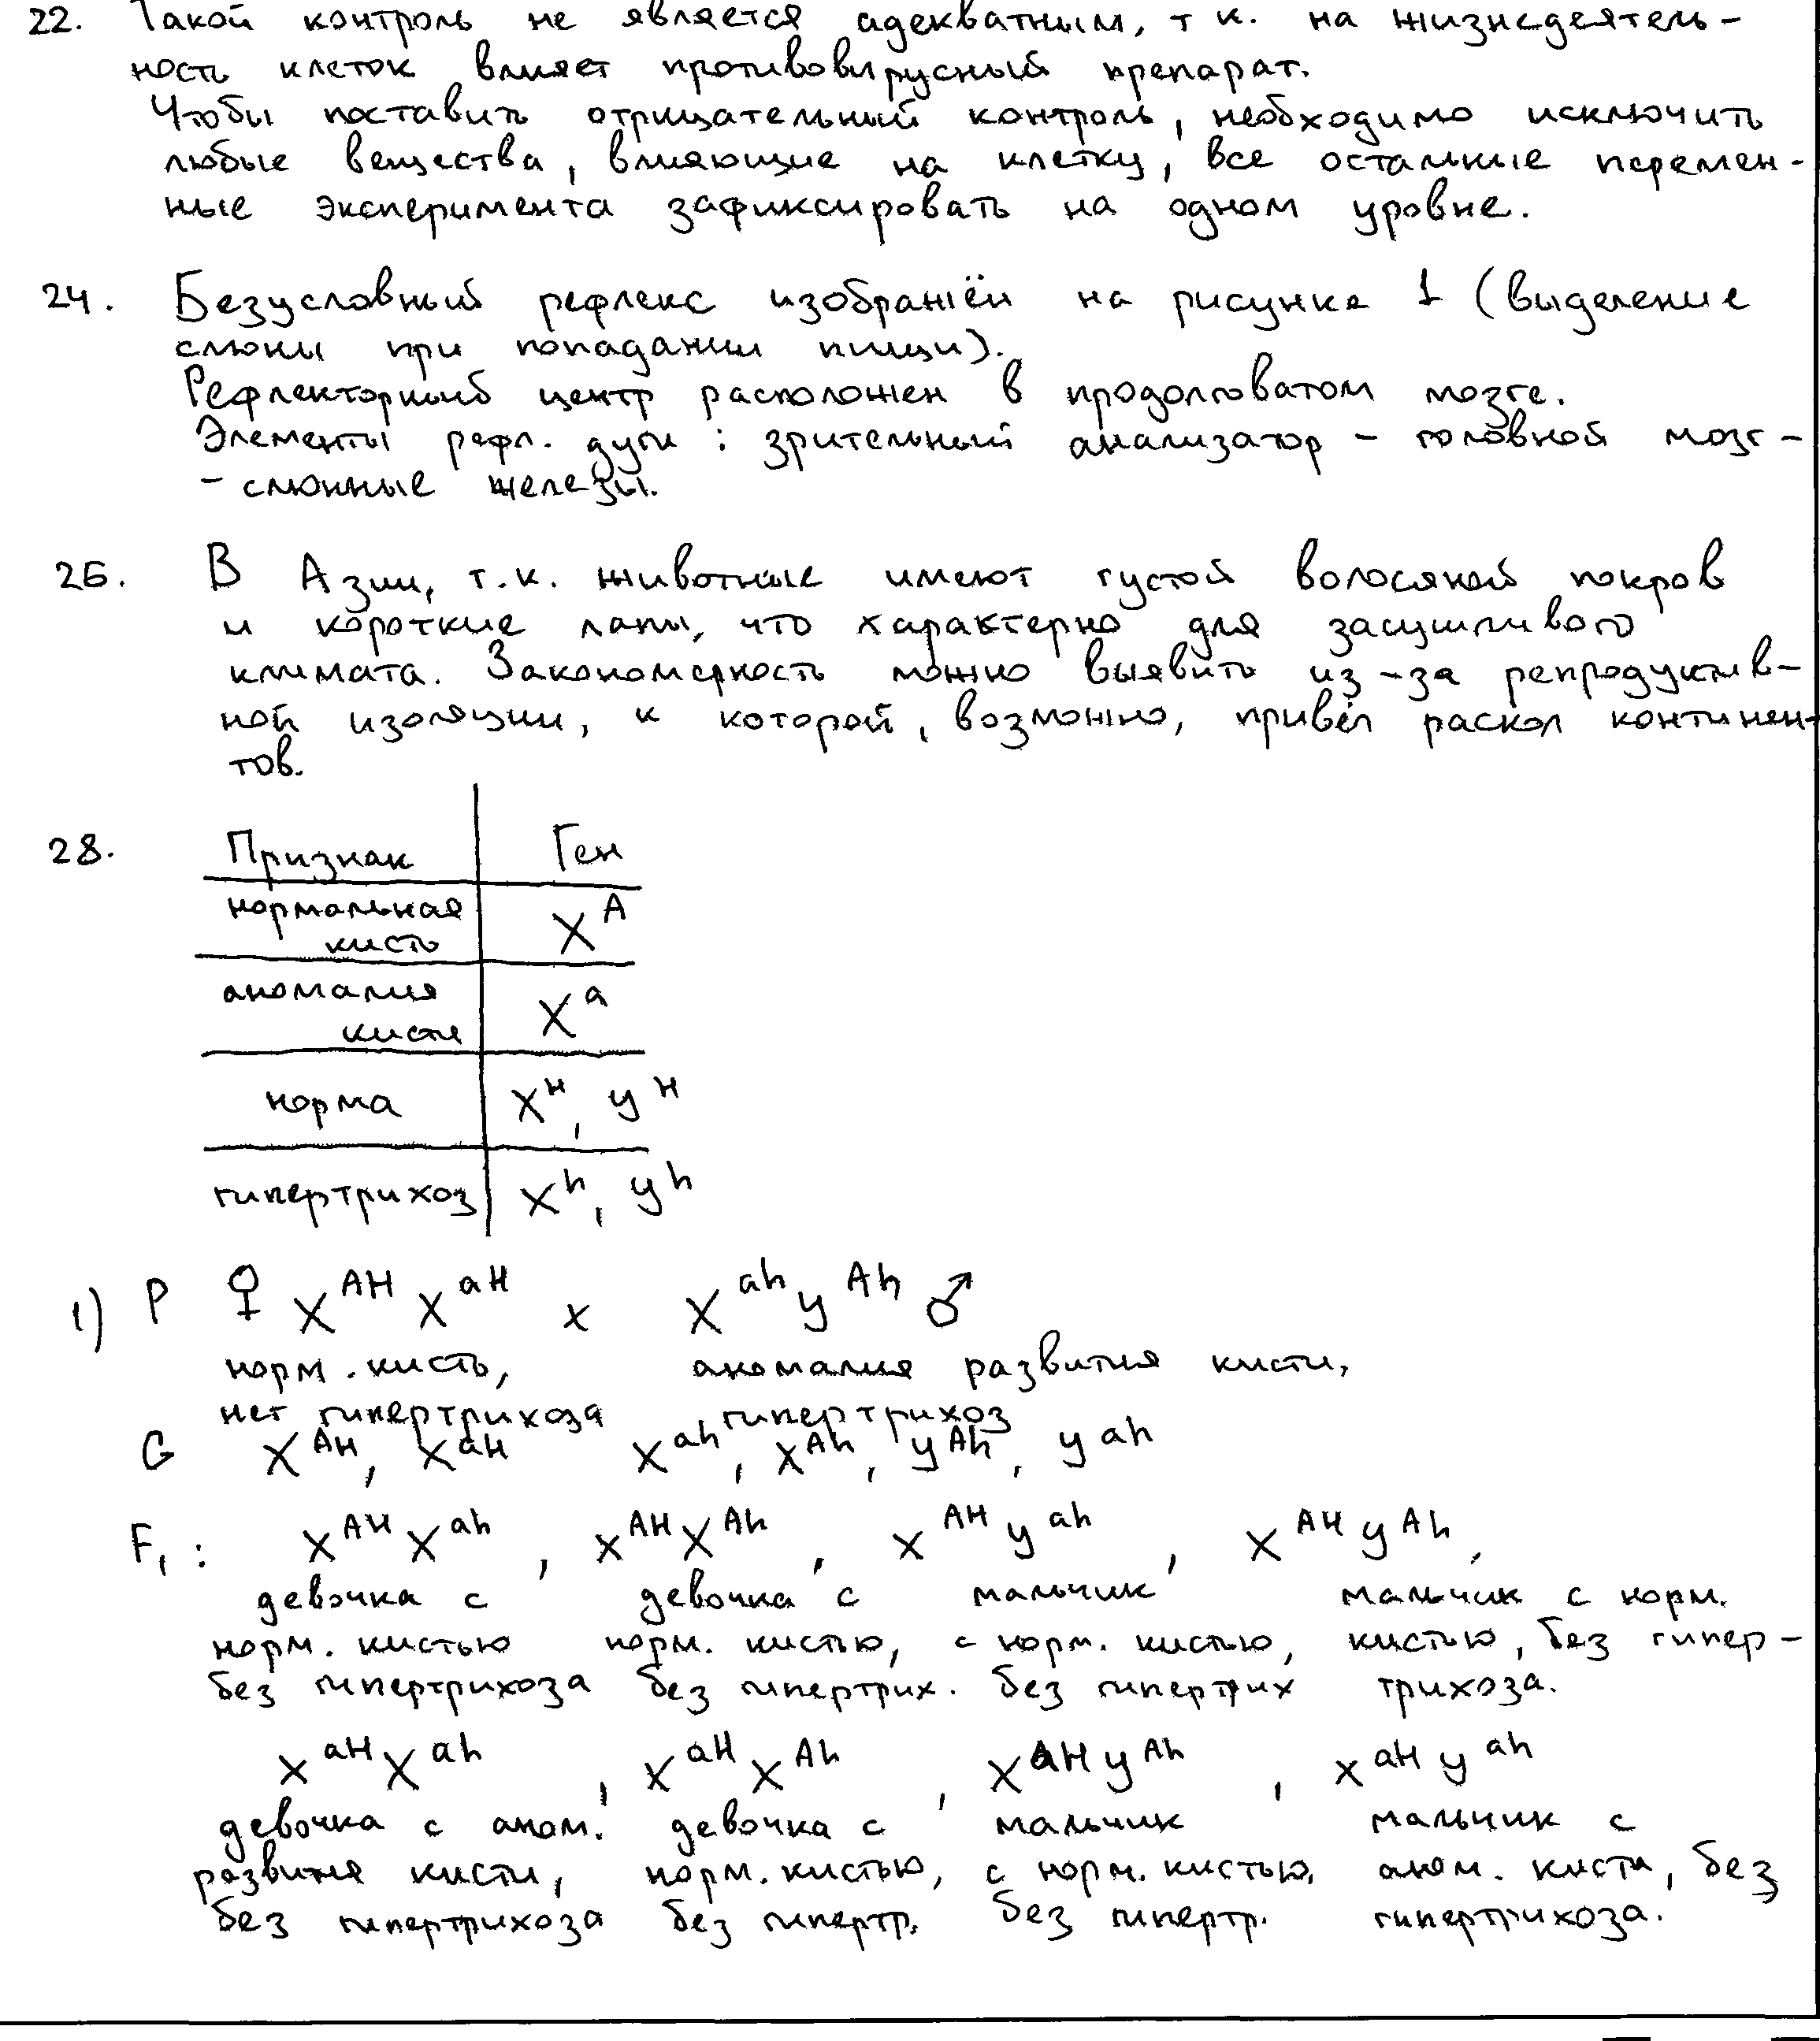 22. Такой контроль не является адекватным, т к. на жизнедеятель-
ность клеток влияет противовирусный препарат.
Чтобы поставить отрицательный контроль, необходимо исключить
любые вещества, влияющие на клетку, все остальные перемен-
ные эксперимента зафиксировать на одном уровне.
24. Безусловный рефлекс изображён на рисунке 1 (выделение
слюны при попадании пищи).
Рефлекторный центр расположен в продолговатом мозге.
Элементы рефл. дуги : зрительный анализатор - головной мозг -
- слюнные железы.
26. В Азии, т.к. животные имеют густой волосяной покров
и короткие лапы, что характерно для засушливого
климата. Закономерность можно выявить из-за репродуктив-
ной изоляции, к которой, возможно, привёл раскол континен-
тов.
28. Признак Ген
нормальная кисть X^A
аномалия кисти X^a
норма X^H, y^H
гипертрихоз X^h, y^h
1) P ♀ X^AH X^aH x X^ah y^Ah ♂
норм. кисть, аномалия развития кисти,
нет гипертрихоза гипертрихоз
G X^AH, X^aH X^ah, X^Ah, y^Ah, y^ah
F1 : X^AH X^ah, X^AH X^Ah, X^AH y^ah, X^AH y^Ah,
девочка с девочка с мальчик мальчик с норм.
норм. кистью норм. кистью, с норм. кистью, кистью, без гипер-
без гипертрихоза без гипертрих. без гипертрих трихоза.
X^aH X^ah, X^aH X^Ah, X^aH y^Ah, X^aH y^ah
девочка с аном. девочка с мальчик мальчик с
развития кисти, норм. кистью, с норм. кистью, аном. кисти, без
без гипертрихоза без гипертр. без гипертр. гипертрихоза.